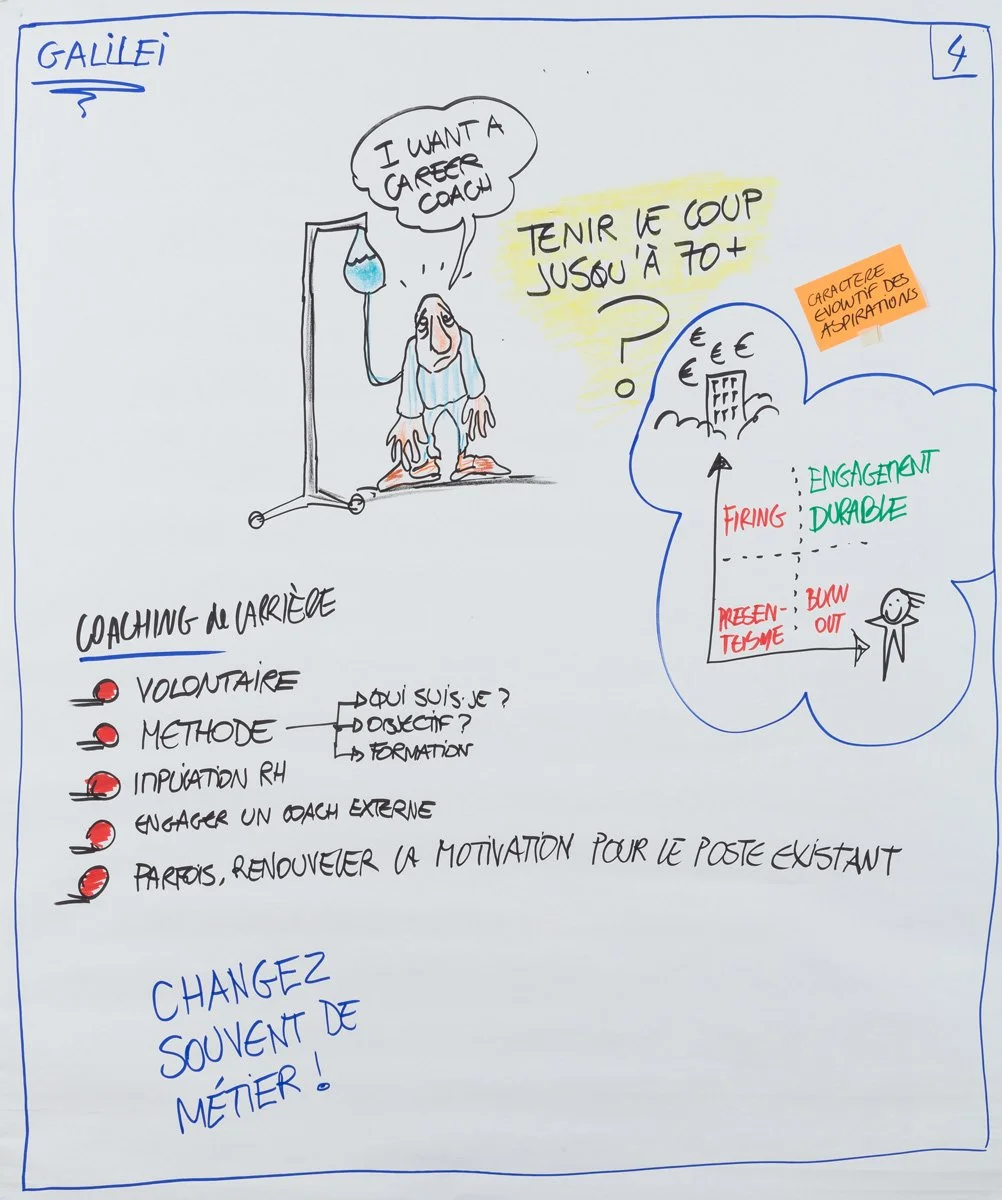 GALILEI
4
I WANT A
CAREER
COACH
TENIR LE COUP
JUSQU'À 70+
?
CARACTERE
EVOLUTIF DES
ASPIRATIONS
€ € € €
FIRING
ENGAGEMENT
DURABLE
PRESEN-
TEISME
BURN
OUT
COACHING de CARRIÈRE
VOLONTAIRE
METHODE
QUI SUIS-JE ?
OBJECTIF ?
FORMATION
IMPLICATION RH
ENGAGER UN COACH EXTERNE
PARFOIS, RENOUVELER LA MOTIVATION POUR LE POSTE EXISTANT
CHANGEZ
SOUVENT DE
MÉTIER !